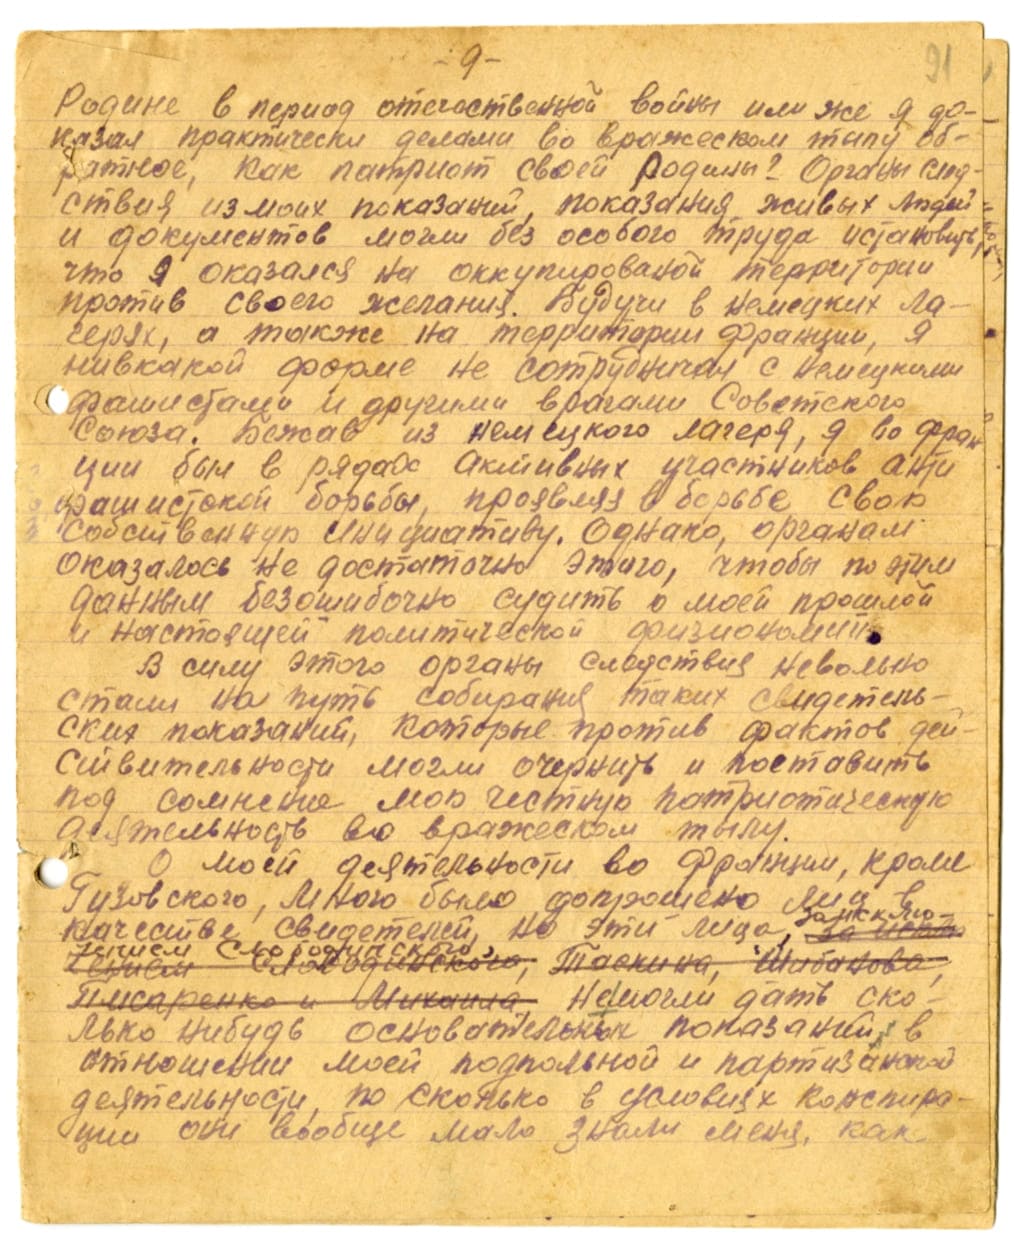 - 9 -
91
Родине в период отечественной войны или же я до-
казал практически делами во вражеском тылу об-
ратное, как патриот своей Родины? Органы след-
ствия из моих показаний, показания живых людей
и документов могли без особого труда установить,
что я оказался на оккупированой территории
против своего желания. Будучи в немецких ла-
герях, а также на территории Франции, я
нивкакой форме не сотрудничал с немецкими
фашистами и другими врагами Советского
Союза. Бежав из немецкого лагеря, я во Фран
ции был в рядах активных участников анти
фашистской борьбы, проявляя в борьбе свою
собственную инициативу. Однако, органам
оказалось не достаточно этого, чтобы по этим
данным безошибочно судить о моей прошлой
и настоящей политической физиономии.
В силу этого органы следствия невольно
стали на путь собирания таких свидетель-
ских показаний, которые против фактов дей-
ствительности могли очернить и поставить
под сомнение мою честную патриотическую
деятельность во вражеском тылу.
О моей деятельности во Франции, кроме
Гузовского, много было допрошено лиц в
качестве свидетелей, но эти лица, за исклю-
чением Слободинского,
чением Слободинского, Таскина, Шибанова,
Писаренко и Михаила, немогли дать ско-
лько нибудь основательных показаний в
отношении моей подпольной и партизанской
деятельности, по сколько в условиях конспира-
ции они вообще мало знали меня, как